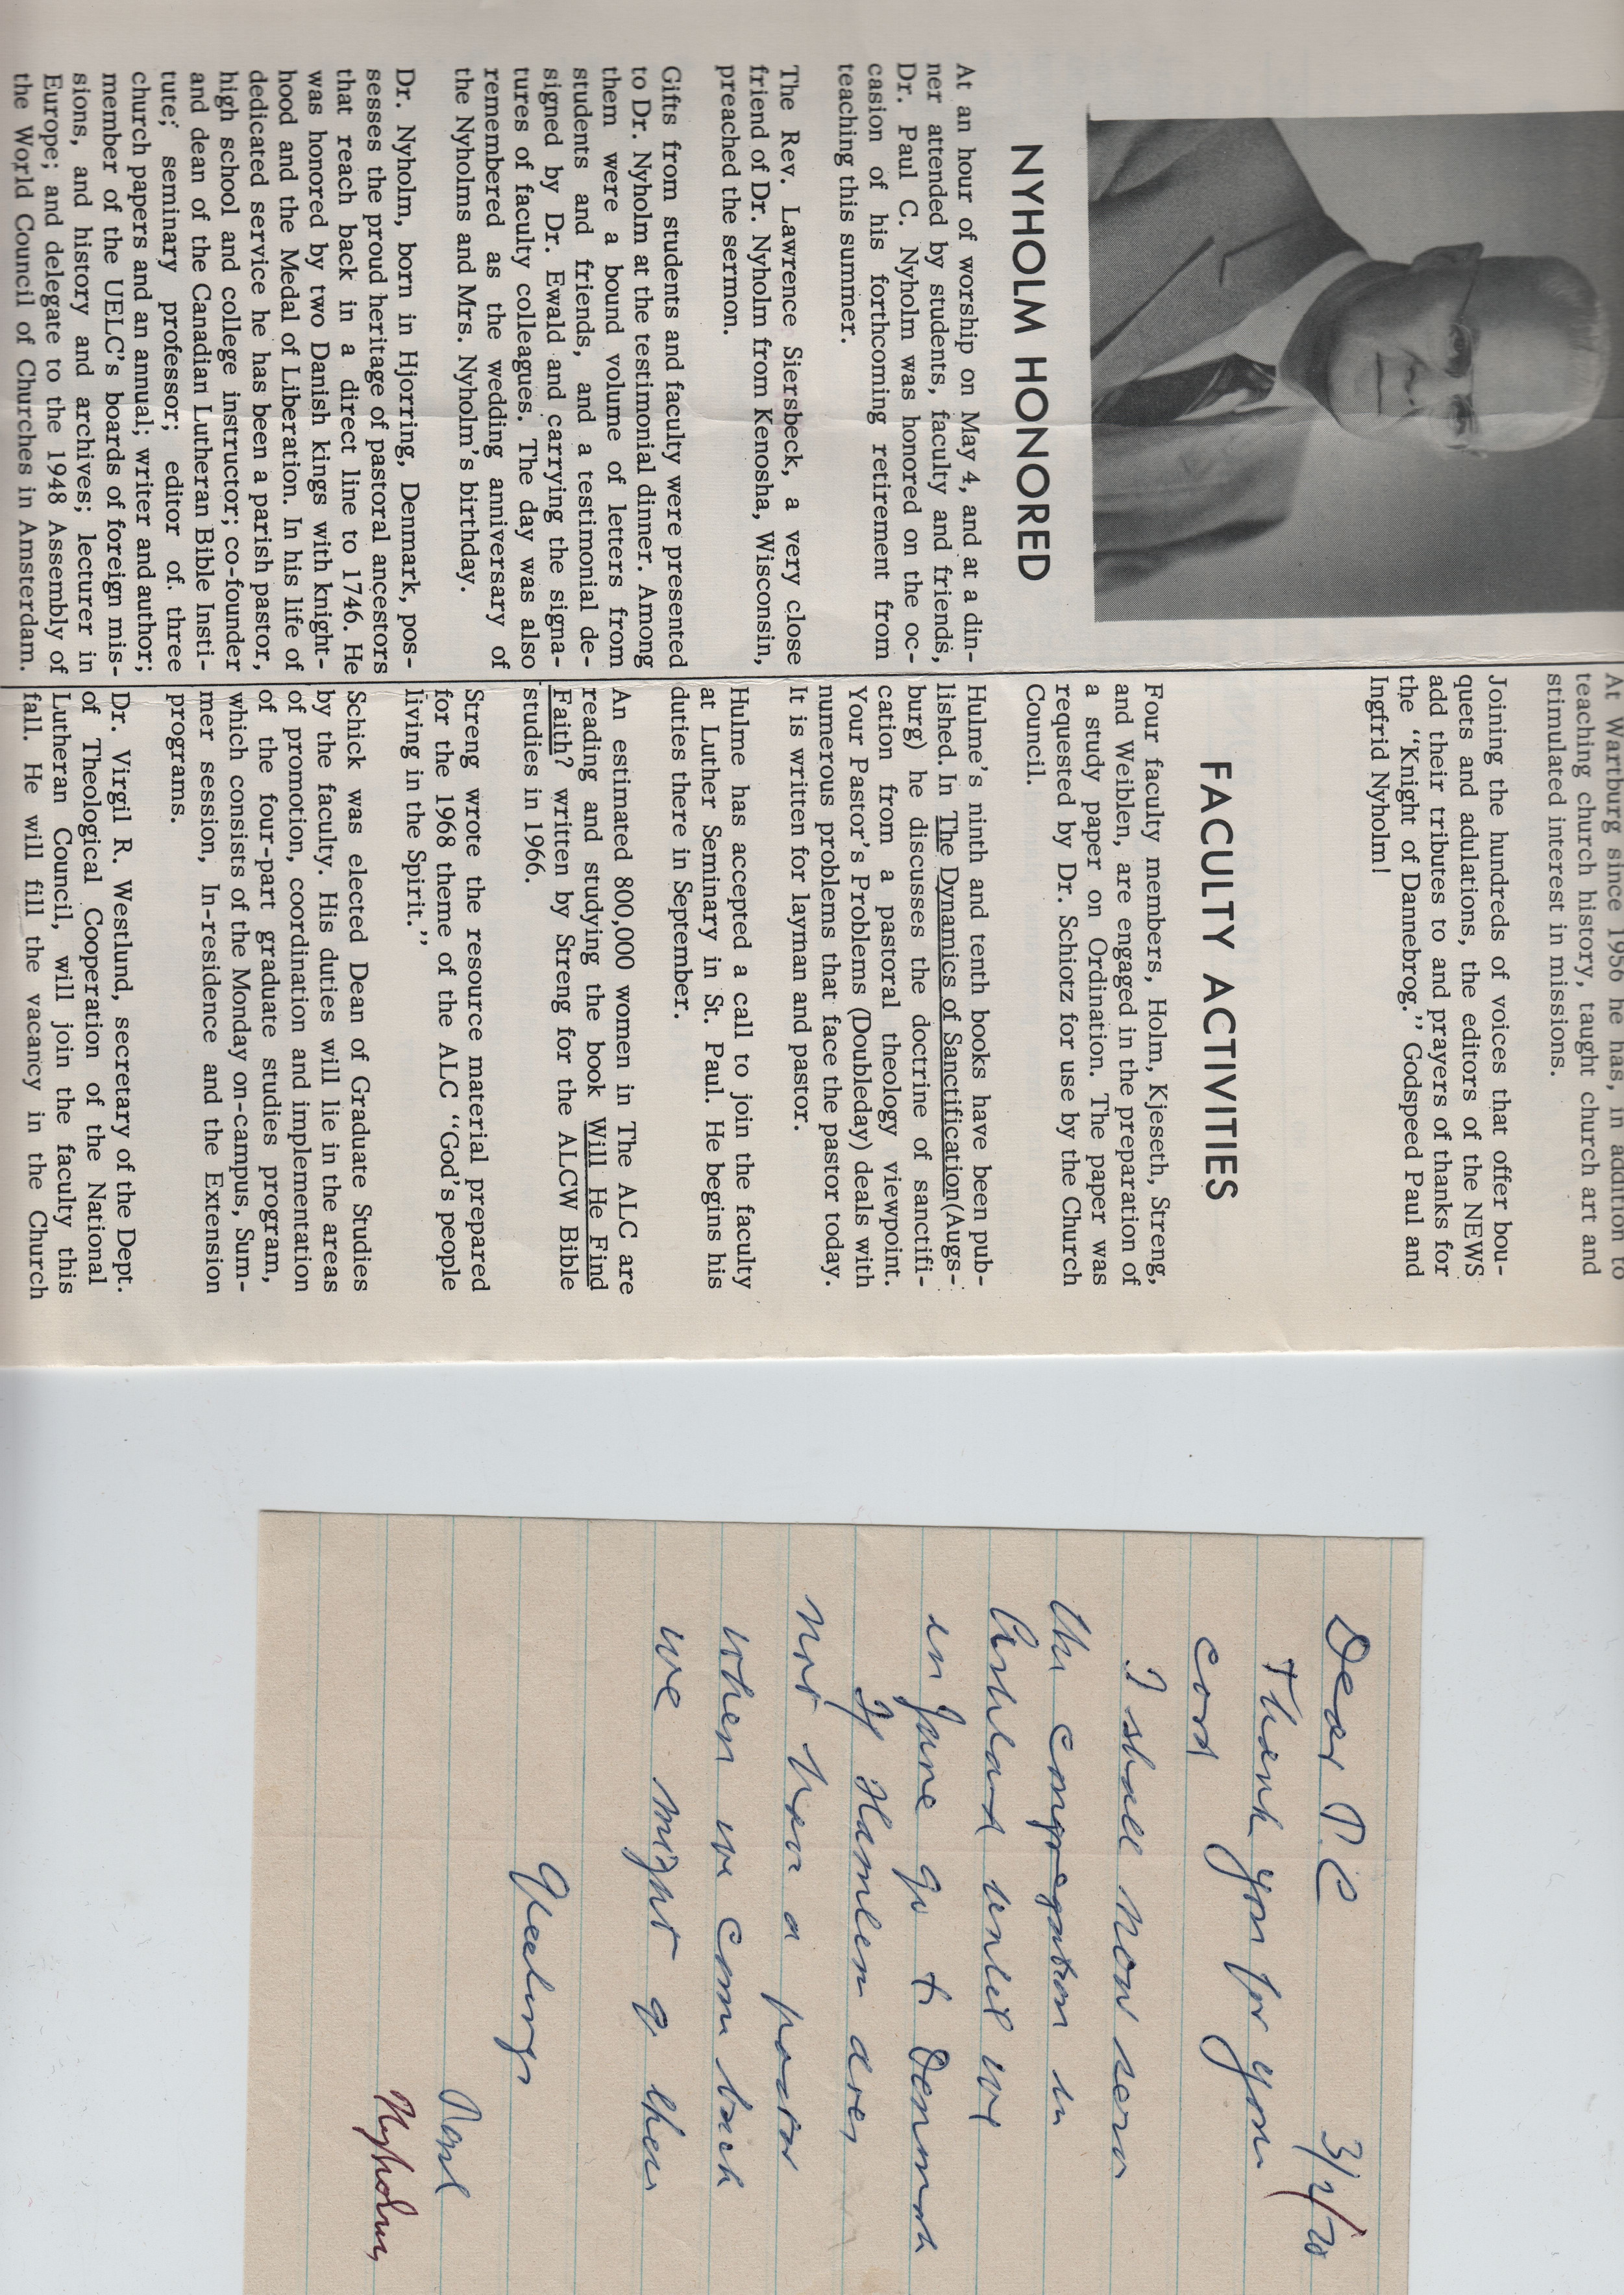 NYHOLM HONORED
At an hour of worship on May 4, and at a din-
ner attended by students, faculty and friends,
Dr. Paul C. Nyholm was honored on the oc-
casion of his forthcoming retirement from
teaching this summer.
The Rev. Lawrence Siersbeck, a very close
friend of Dr. Nyholm from Kenosha, Wisconsin,
preached the sermon.
Gifts from students and faculty were presented
to Dr. Nyholm at the testimonial dinner. Among
them were a bound volume of letters from
students and friends, and a testimonial de-
signed by Dr. Ewald and carrying the signa-
tures of faculty colleagues. The day was also
remembered as the wedding anniversary of
the Nyholms and Mrs. Nyholm's birthday.
Dr. Nyholm, born in Hjorring, Denmark, pos-
sesses the proud heritage of pastoral ancestors
that reach back in a direct line to 1746. He
was honored by two Danish kings with knight-
hood and the Medal of Liberation. In his life of
dedicated service he has been a parish pastor,
high school and college instructor; co-founder
and dean of the Canadian Lutheran Bible Insti-
tute; seminary professor; editor of three
church papers and an annual; writer and author;
member of the UELC's boards of foreign mis-
sions, and history and archives; lecturer in
Europe; and delegate to the 1948 Assembly of
the World Council of Churches in Amsterdam.
At Wartburg since 1956 he has, in addition to
teaching church history, taught church art and
stimulated interest in missions.
Joining the hundreds of voices that offer bou-
quets and adulations, the editors of the NEWS
add their tributes to and prayers of thanks for
the "Knight of Dannebrog." Godspeed Paul and
Ingfrid Nyholm!
FACULTY ACTIVITIES
Four faculty members, Holm, Kjeseth, Streng,
and Weiblen, are engaged in the preparation of
a study paper on Ordination. The paper was
requested by Dr. Schiotz for use by the Church
Council.
Hulme's ninth and tenth books have been pub-
lished. In The Dynamics of Sanctification(Augs-
burg) he discusses the doctrine of sanctifi-
cation from a pastoral theology viewpoint.
Your Pastor's Problems (Doubleday) deals with
numerous problems that face the pastor today.
It is written for layman and pastor.
Hulme has accepted a call to join the faculty
at Luther Seminary in St. Paul. He begins his
duties there in September.
An estimated 800,000 women in The ALC are
reading and studying the book Will He Find
Faith? written by Streng for the ALCW Bible
studies in 1966.
Streng wrote the resource material prepared
for the 1968 theme of the ALC "God's people
living in the Spirit."
Schick was elected Dean of Graduate Studies
by the faculty. His duties will lie in the areas
of promotion, coordination and implementation
of the four-part graduate studies program,
which consists of the Monday on-campus, Sum-
mer session, In-residence and the Extension
programs.
Dr. Virgil R. Westlund, secretary of the Dept.
of Theological Cooperation of the National
Lutheran Council, will join the faculty this
fall. He will fill the vacancy in the Church
Dear P.C 3/2/70
Thank you for your
card
I shall now serve
the congregation in
Ashland until we
in June go to Denmark
If Hamlen does
not have a pastor
when we come back
we might go there
Greetings
Paul
Nyholm